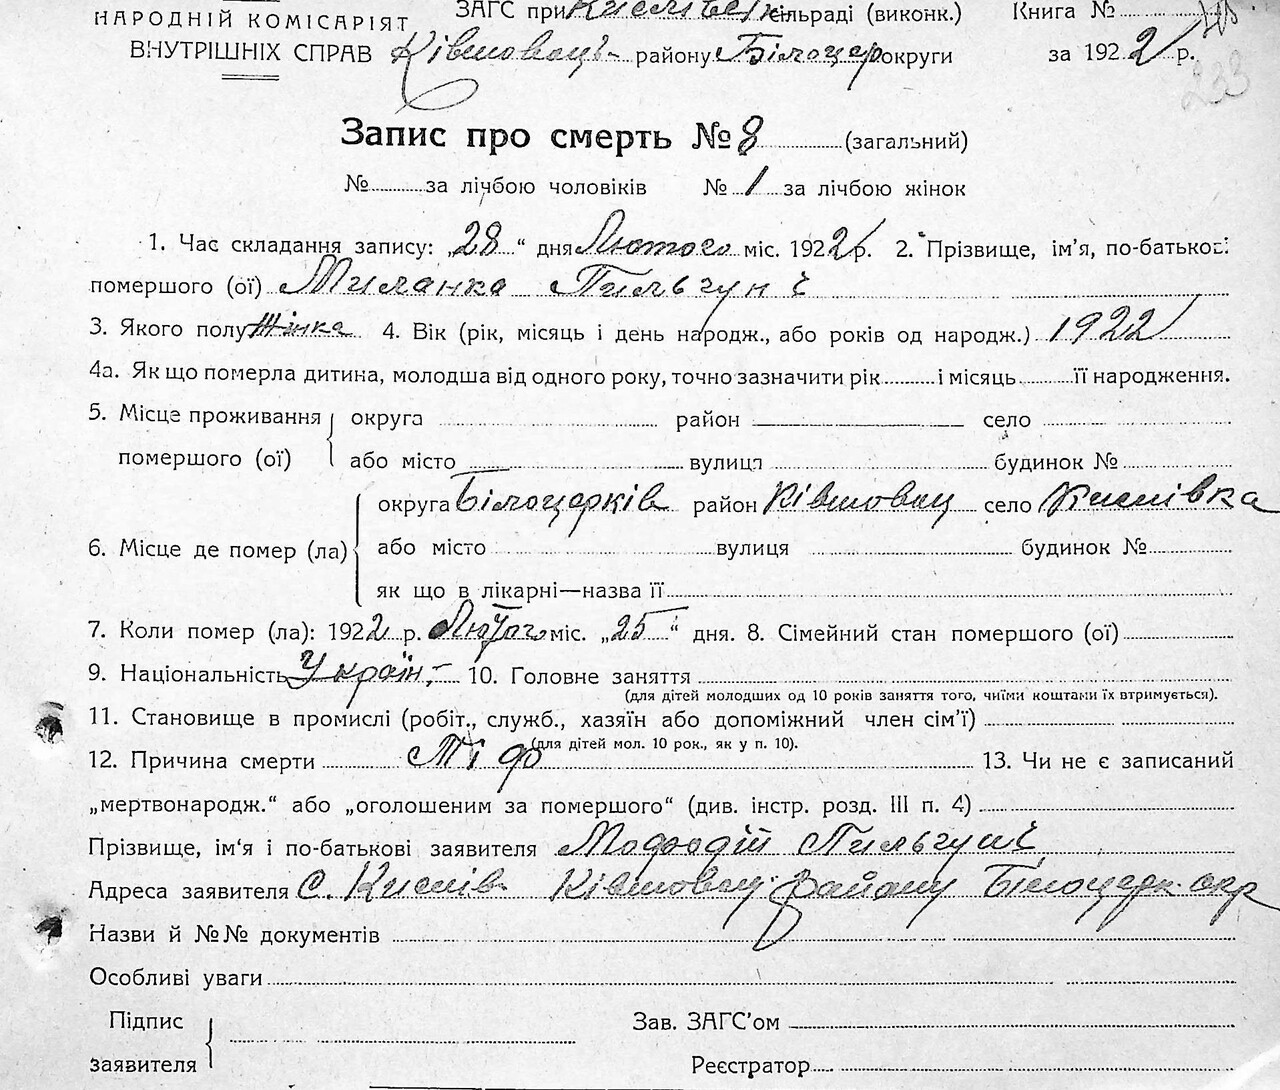 НАРОДНІЙ КОМІСАРІЯТ
ВНУТРІШНІХ СПРАВ
ЗАГС при Кислівськ сільраді (виконк.) Книга №
Ківшовацьк району Білоцер округи за 1922 р.
233
Запис про смерть № 8 (загальний)
№ за лічбою чоловіків № 1 за лічбою жінок
1. Час складання запису: „28“ дня Лютого міс. 1922 р. 2. Прізвище, ім'я, по-батькові
помершого (ої) Миланка Пильгуні
3. Якого полу Жінка 4. Вік (рік, місяць і день народж., або років од народж.) 1922
4а. Як що померла дитина, молодша від одного року, точно зазначити рік і місяць її народження.
5. Місце проживання помершого (ої) округа район село
або місто вулиця будинок №
6. Місце де помер (ла) округа Білоцерків район Ківшовац село Кислівка
або місто вулиця будинок №
як що в лікарні—назва її
7. Коли помер (ла): 1922 р. Лютого міс. „25“ дня. 8. Сімейний стан помершого (ої)
9. Національність Україн. 10. Головне заняття
(для дітей молодших од 10 років заняття того, чиїми коштами їх втримується).
11. Становище в промислі (робіт., служб., хазяїн або допоміжний член сім'ї)
(для дітей мол. 10 рок., як у п. 10).
12. Причина смерти Тіф 13. Чи не є записаний
„мертвонародж.“ або „оголошеним за помершого“ (див. інстр. розд. III п. 4)
Прізвище, ім'я і по-батькові заявителя Пильгуні
Адреса заявителя С. Кислів Ківшовац. району Білоцерк. окр
Назви й №№ документів
Особливі уваги
Підпис заявителя
Зав. ЗАГС'ом
Реєстратор